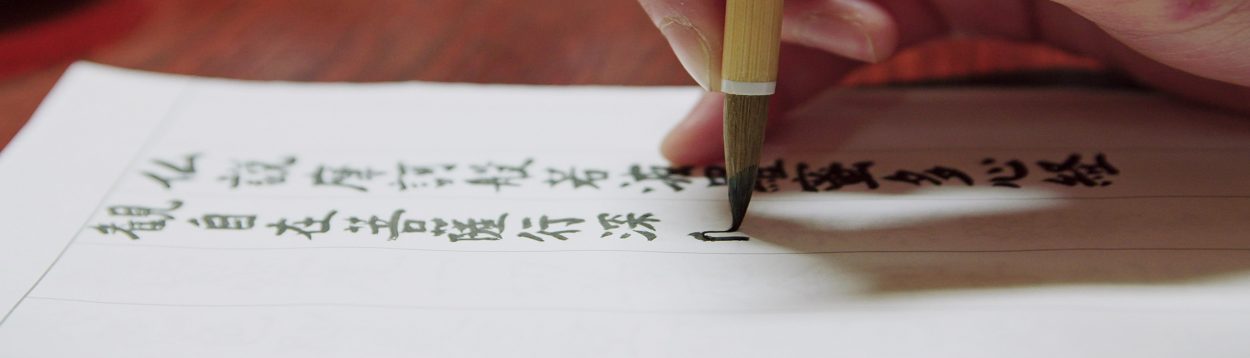 仏説摩訶般若波羅蜜多心経
観自在菩薩行深